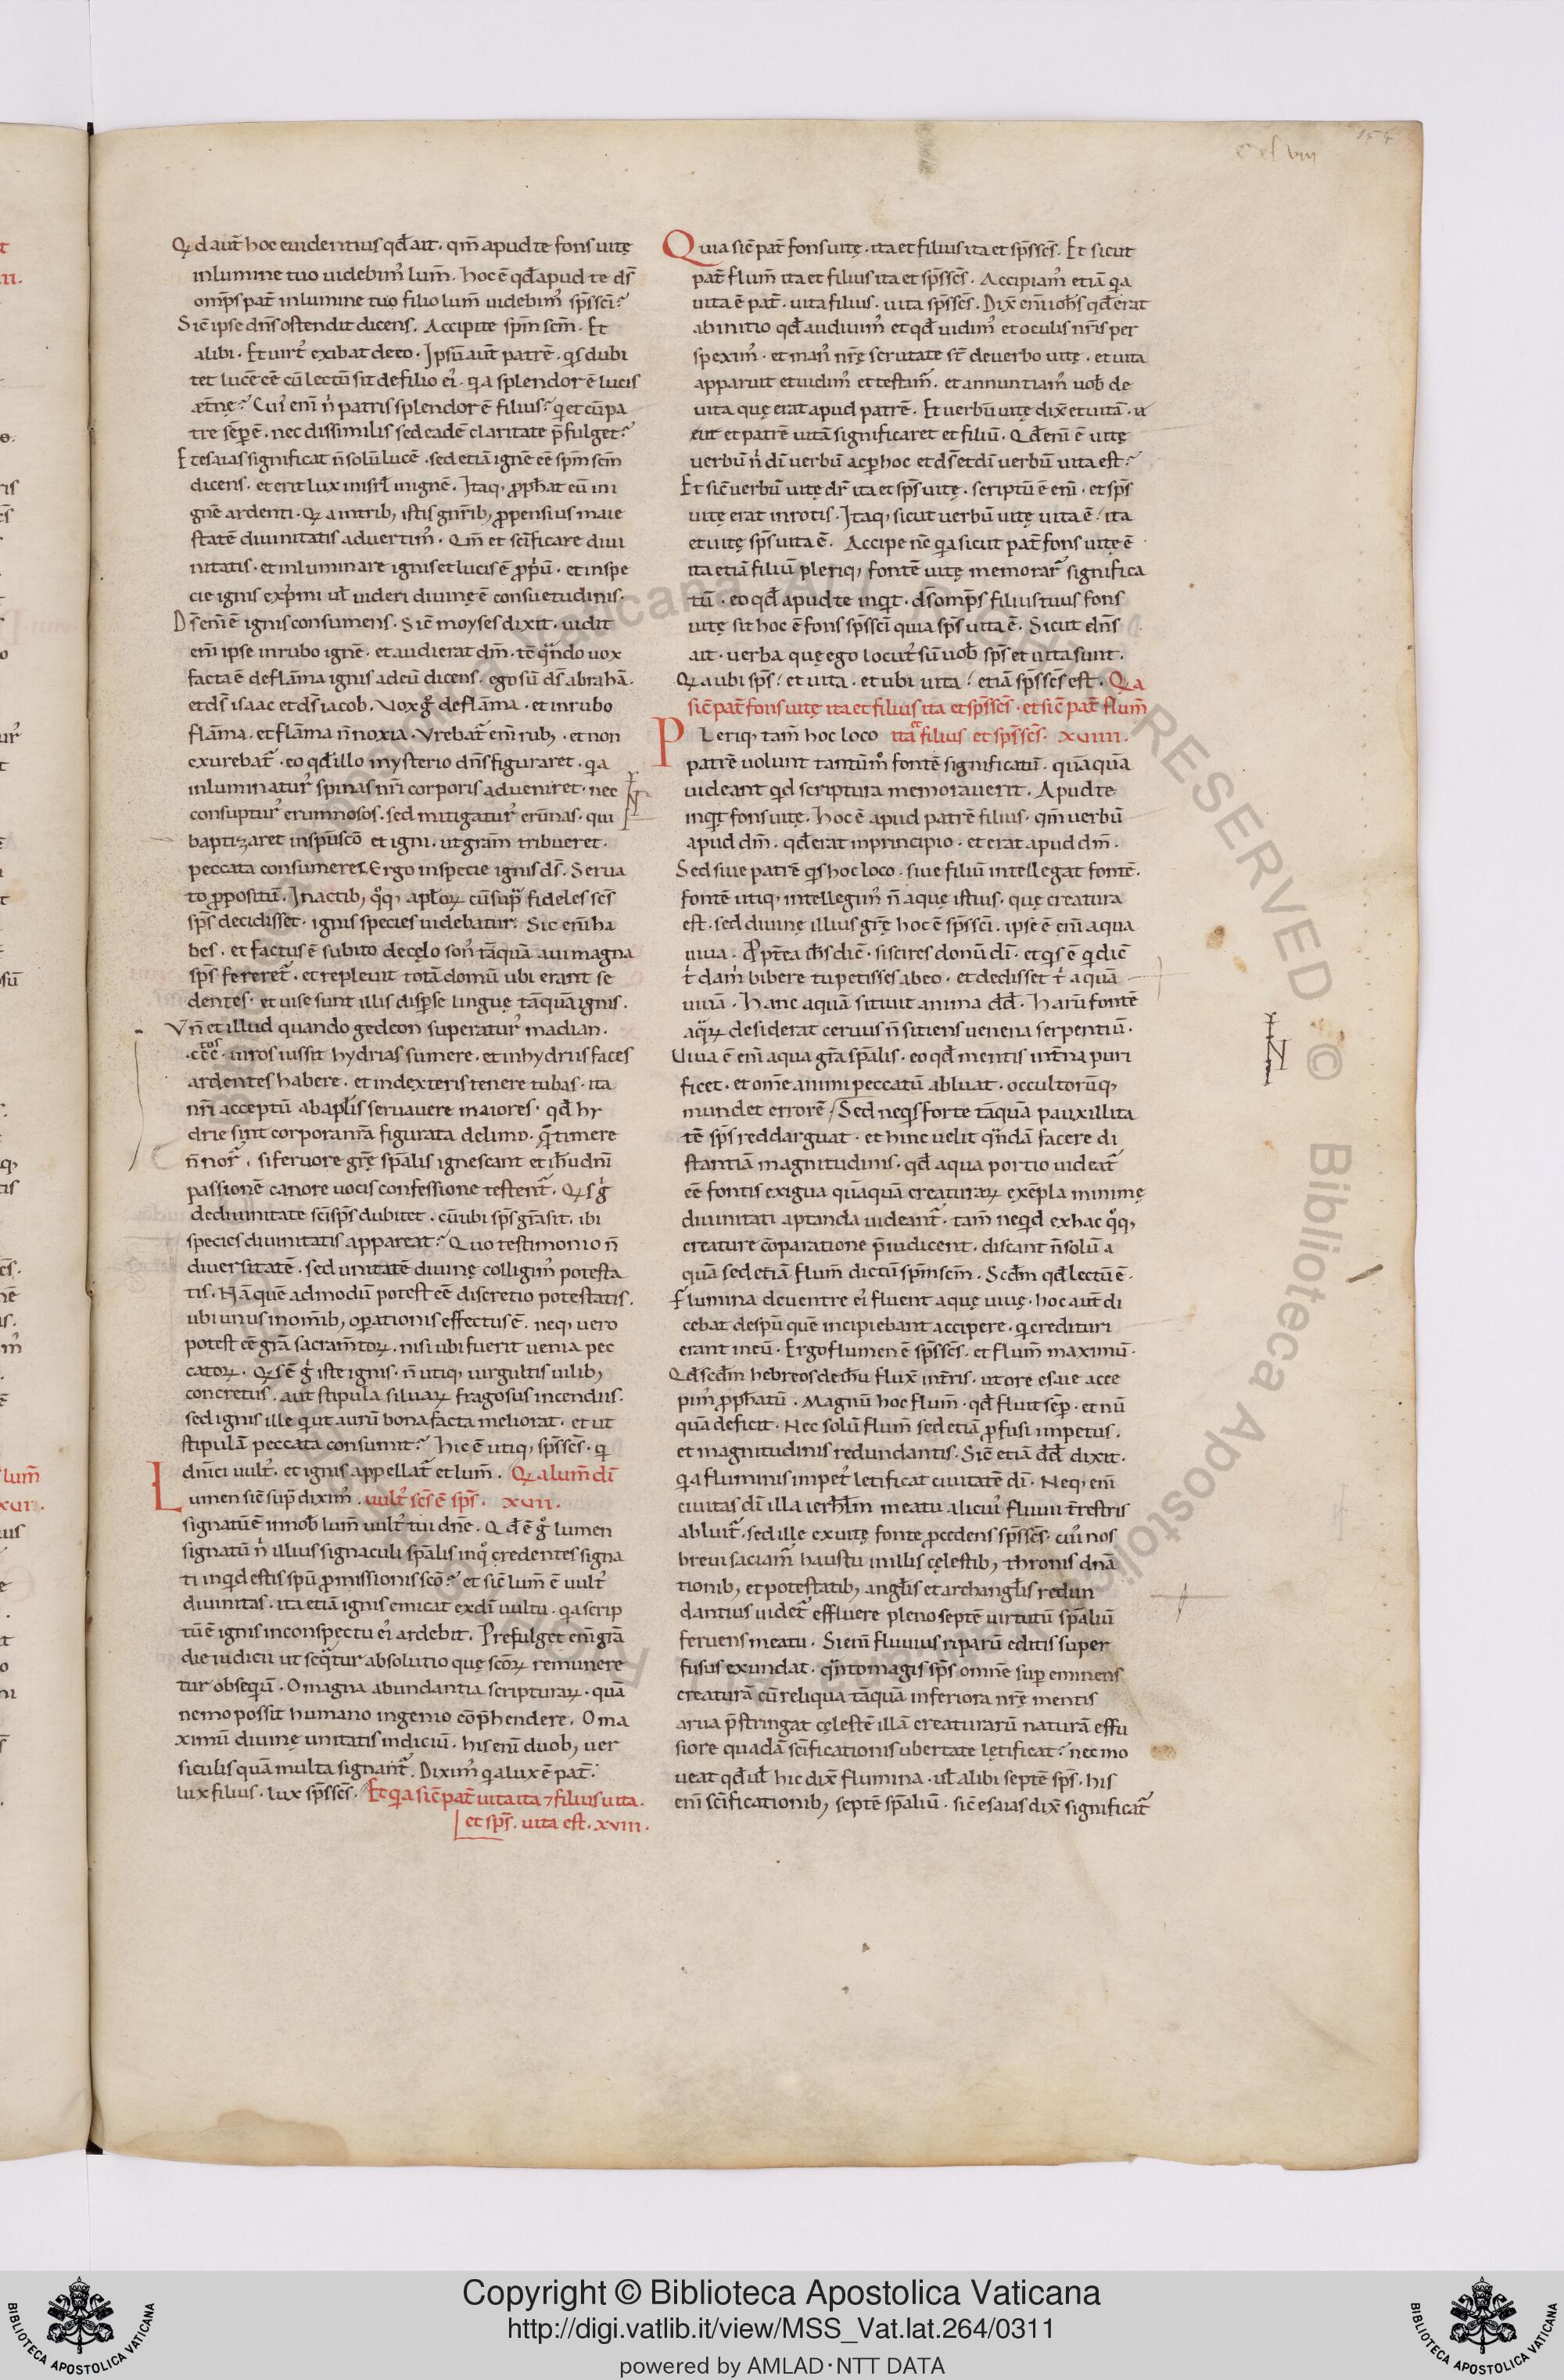 154
Qd aut̄ hoc euidentius qd̄ ait. qm̄ apud te fons uitę
in lumine tuo uidebim᷒ lum̄. hoc ē qd̄ apud te ds̄
omp̄s pat̄ in lumine tuo filio lum̄ uidebim᷒ sp̄s sc̄i?
Sic̄ ipse dn̄s ostendit dicens. Accipite sp̄m sc̄m. Et
alibi. Et uirt᷒ exibat de eo. Ipsū aut̄ patrē. qs dubi
tet lucē eē cū lectū sit de filio ei᷒. qa splendor ē lucis
æt̄nę? Cui᷒ eni̅ n̄ patris splendor ē filius? q et cū pa
tre sēp ē. nec dissimilis sed eadē claritate p̄fulget?
Et esaias significat n̄ solū lucē. sed etiā ignē eē sp̄m sc̄m
dicens. et erit lux isrl̄ in ignē. Itaq, pph̄at eū in i
gnē ardenti. Qa in trib, istis gn̄rib, ppensius maie
statē diuinitatis aduertim᷒. Qm̄ et sc̄ificare diui
nitatis. et inluminare ignis et lucis ē pp̄ū. et in spe
cie ignis exp̄mi ul̄ uideri diuinę ē consuetudinis.
Ds̄ eni̅ ē ignis consumens. Sic̄ moyses dixit. uidit
eni̅ ipse in rubo ignē. et audierat dm̄. tē qndo uox
facta ē de flāma ignis ad eū dicens. ego sū ds̄ abrahā.
et ds̄ isaac et ds̄ iacob. Vox g de flāma. et in rubo
flāma. et flāma n̄ noxia. Vrebat̄ eni̅ rub,. et non
exurebat̄. eo qd̄ illo mysterio dn̄s figuraret. qa
inluminatur᷒ spinas nr̄i corporis adueniret. nec
consuptur᷒ erumnosos. sed mitigatur᷒ erūnas. qui
baptizaret in sp̄u sc̄o et igni. ut grām tribueret.
peccata consumeret. Ergo in specie ignis ds̄. Serua
to ppositū. In actib, qq, apl̄oꝝ cū sup fideles sc̄s
sp̄s decidisset. ignis species uidebatur. Sic eni̅ ha
bes. et factus ē subito de cęlo son᷒ tāquā aui magna
sp̄s fereret̄. et repleuit totā domū ubi erant se
dentes. et uise sunt illis dispse linguę tāquā ignis.
Vn̄ et illud quando gedeon superatur᷒ madian.
.ccc.tos uiros iussit hydrias sumere. et in hydriis faces
ardentes habere. et in dexteris tenere tubas. ita
nr̄i acceptū ab apl̄is seruauere maiores. qd̄ hy
drie sint corpora nr̄a figurata de limo. q timere
n̄ nor̄. si feruore gr̄ę sp̄alis ignescant et ih̄u dn̄i
passionē canore uocis confessione testent̄. Qs g
de diuinitate sc̄i sp̄s dubitet. cū ubi sp̄s gr̄a sit. ibi
species diuinitatis appareat? Quo testimonio n̄
diuersitatē. sed unitatē diuinę colligim᷒ potesta
tis. Nā quē admodū potest eē discretio potestatis.
ubi unus in om̄ib, opationis effectus ē. neq, uero
potest eē gr̄a sacram̄toꝝ. nisi ubi fuerit uenia pec
catoꝝ. Qs ē g iste ignis. n̄ utiq, uirgultis uilib,
concretus. aut stipula siluaꝝ fragosus incendiis.
sed ignis ille q ut aurū bona facta meliorat. et ut
stipulā peccata consumit? hic ē utiq, sp̄s sc̄s. q
dn̄ici uult᷒. et ignis appellat̄ et lum̄. Qa lum̄ di̅
Lumen sic̄ sup dixim᷒. uult᷒ sc̄s ē sp̄s. XVII.
signatū ē in nob̄ lum̄ uult᷒ tui dn̄e. Qd̄ ē g lumen
signatū n̄ illius signaculi sp̄alis in q credentes signa
ti inqd estis sp̄u pmissionis sc̄o? et sic̄ lum̄ ē uult᷒
diuinitas. ita etiā ignis emicat ex di̅ uultu. qa scrip
tū ē ignis in conspectu ei᷒ ardebit. Prefulget eni̅ gr̄a
die iudicii ut seqtur absolutio quę sc̄oꝝ remunere
tur obsequiū. O magna abundantia scripturaꝝ. quā
nemo possit humano ingenio cōp̄hendere. O ma
ximū diuinę unitatis indiciū. his eni̅ duob, uer
siculis quā multa signant̄. Dixim᷒ qa lux ē pat̄.
lux filius. lux sp̄s sc̄s. Et qa sic̄ pat̄ uita ita ⁊ filius uita.
et sp̄s. uita est. XVIII.
Quia sic̄ pat̄ fons uitę. ita et filius ita et sp̄s sc̄s. Et sicut
pat̄ flum̄ ita et filius ita et sp̄s sc̄s. Accipiam᷒ etiā qa
uita ē pat̄. uita filius. uita sp̄s sc̄s. Dix̄ eni̅ ioh̄s qd̄ erat
ab initio qd̄ audiuim᷒ et qd̄ uidim᷒ et oculis nr̄is per
spexim᷒. et man᷒ nr̄ę scrutate st̄ de uerbo uitę. et uita
apparuit et uidim᷒ et testam̄. et annuntiam᷒ uob̄ de
uita quę erat apud patrē. Et uerbū uitę dix̄ et uitā. u
eut et patrē uitā significaret et filiū. Qd̄ eni̅ ē uitę
uerbū n̄ di̅ uerbū ac p hoc et ds̄ et di̅ uerbū uita est?
Et sic̄ uerbū uitę dr̄ ita et sp̄s uitę. scriptū ē eni̅. et sp̄s
uitę erat in rotis. Itaq, sicut uerbū uitę uita ē. ita
et uitę sp̄s uita ē. Accipe nc̄ qa sicut pat̄ fons uitę ē
ita etiā filiū pleriq, fontē uitę memorar̄ significa
tū. eo qd̄ apud te inqt. ds̄ omp̄s filius tuus fons
uitę sit hoc ē fons sp̄s sc̄i quia sp̄s uita ē. Sicut dn̄s
ait. uerba quę ego locut᷒ sū uob̄ sp̄s et uita sunt.
Qa ubi sp̄s. et uita. et ubi uita. etiā sp̄s sc̄s est. Qa
sic̄ pat̄ fons uitę ita et filius ita et sp̄s sc̄s. et sic̄ pat̄ flum̄
Pleriq, tam̄ hoc loco ita et filius et sp̄s sc̄s. XVIIII.
patrē uolunt tantūm fontē significatū. quāquā
uideant qd scriptura memorauerit. Apud te
inqt fons uitę. hoc ē apud patrē filius. qm̄ uerbū
apud dm̄. qd̄ erat in principio. et erat apud dm̄.
Sed siue patrē qs hoc loco. siue filiū intellegat fontē.
fontē utiq, intellegim᷒ n̄ aquę istius. quę creatura
est. sed diuinę illius gr̄ę hoc ē sp̄s sc̄i. ipse ē eni̅ aqua
uiua. Ppt̄ea ih̄s dic̄. si scires donū di̅. et qs ē q dic̄
t dam bibere tu petisses ab eo. et dedisset t aquā
uiuā. Hanc aquā sitiuit anima dd̄. Harū fontē
aqꝝ desiderat ceruus n̄ sitiens uenena serpentiū.
Uiua ē eni̅ aqua gr̄a sp̄alis. eo qd̄ mentis int̄na puri
ficet. et om̄e animi peccatū abluat. occultorūq,
mundet errorē. Sed neqs forte tāquā pauxillita
tē sp̄s reddarguat. et hinc uelit qndā facere di
stantiā magnitudinis. qd̄ aqua portio uideat̄
eē fontis exigua quāquā creaturaꝝ exēpla minimę
diuinitati aptanda uideant̄. tam̄ neqd ex hac qq,
creature cōparatione p̄iudicent. discant n̄ solū a
quā sed etiā flum̄ dictū sp̄m sc̄m. Scd̄m qd̄ lectū ē.
Flumina de uentre ei᷒ fluent aquę uiuę. hoc aut̄ di
cebat de sp̄u quē incipiebant accipere. q credituri
erant in eū. Ergo flumen ē sp̄s sc̄s. et flum̄ maximū.
Qd̄ scd̄m hebreos de ih̄u flux̄ int̄ris. ut ore esaie acce
pim᷒ pph̄atū. Magnū hoc flum̄. qd̄ fluit sēp. et nū
quā deficit. Nec solū flum̄ sed etiā pfusi impetus.
et magnitudinis redundantis. Sic̄ etiā dd̄ dixit.
qa fluminis impet᷒ letificat ciuitatē di̅. Neq, eni̅
ciuitas di̅ illa ierl̄m meatu alicui᷒ fluuii t̄restris
abluit̄. sed ille ex uitę fonte pcedens sp̄s sc̄s. cui᷒ nos
breui saciam̄ haustu in illis cęlestib, thronis dnā
tionib, et potestatib, angl̄is et archangl̄is redun
dantius uidet̄ effluere pleno septē uirtutū sp̄aliū
feruens meatu. Si eni̅ fluuius riparū editis super
fusus exundat. qnto magis sp̄s omnē sup eminens
creaturā cū reliqua tāquā inferiora nr̄ę mentis
arua p̄stringat cęlestē illā creaturarū naturā effu
siore quadā sc̄ificationis ubertate lętificat? nec mo
ueat qd̄ ul̄ hic dix̄ flumina. ul̄ alibi septē sp̄s. his
eni̅ sc̄ificationib, septē sp̄aliū. sic̄ esaias dix̄ significat̄
Copyright © Biblioteca Apostolica Vaticana
http://digi.vatlib.it/view/MSS_Vat.lat.264/0311
powered by AMLAD·NTT DATA
BIBLIOTECA APOSTOLICA VATICANA
BIBLIOTECA APOSTOLICA VATICANA